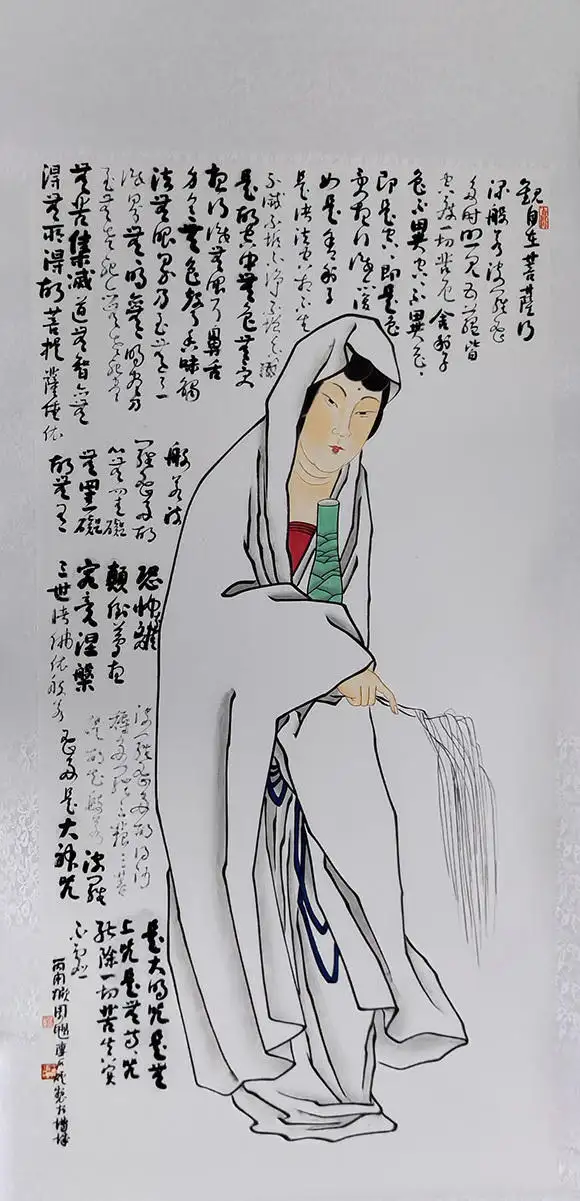 觀自在菩薩行
深般若波羅蜜
多時照見五蘊皆
空度一切苦厄舍利子
色不異空、不異色、
即是空、即是色
受想行識復
如是舍利子
是諸法空相不生
不滅不垢不淨不增不減
是故空中無色無受
想行識無眼耳鼻舌
身意無色聲香味觸
法無眼界乃至無意
識界無無明無明盡乃
至無老死亦無老死盡
無苦集滅道無智亦無
得無所得故菩提薩埵依
般若波
羅蜜多故
心無罣礙
無罣礙
故無有
恐怖離
顛倒夢想
究竟涅槃
三世諸佛依般若
波羅蜜多故得阿
耨多羅三藐三菩
提故知般若波羅
蜜多是大神咒
是大明咒是無
上咒是無等、咒
能除一切苦真實
不虛
丙申